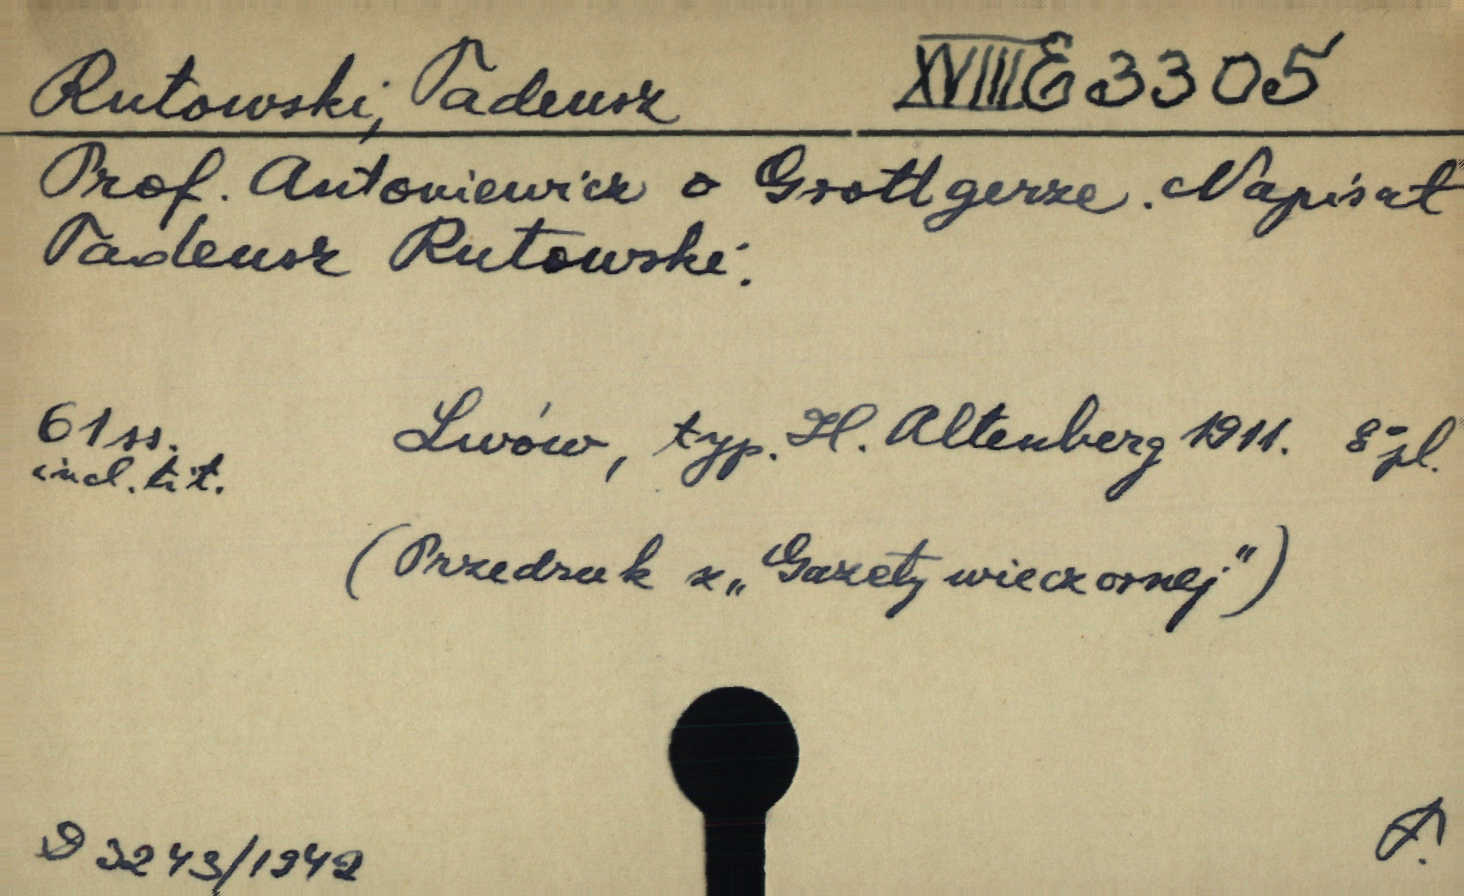 Rutowski, Tadeusz XVIII E 3305
Prof. Antoniewicz o Grottgerze. Napisał
Tadeusz Rutowski.
61 ss. Lwów, typ. H. Altenberg 1911. 8º pl.
incl. tit.
(Przedruk z „Gazety wieczornej")
D 3243/1942